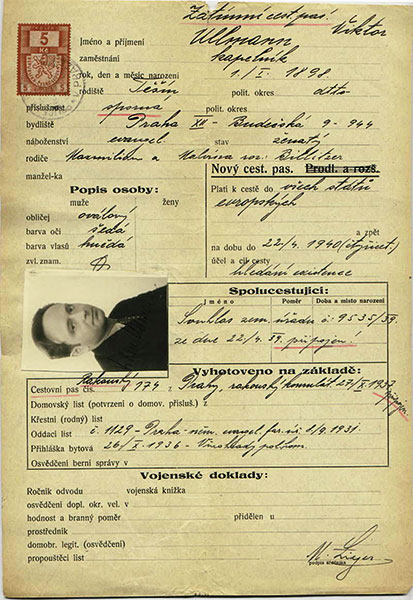 Zatímní cest. pas.
5
Kč
Jméno a příjmení Ullmann Viktor
zaměstnání kapelník
rok, den a měsíc narození 1./I. 1898.
rodiště Těšín polit. okres dtto
příslušnost sporná polit. okr.
bydliště Praha XII - Budečská 9 - 944
náboženství evangel. stav ženatý
rodiče Maxmilian a Malvina roz. Billitzer
manžel-ka
Nový cest. pas. Prodl. a rozš.
Popis osoby:
muže ženy
obličej oválový
barva očí šedá
barva vlasů hnědá
zvl. znam.
Platí k cestě do všech států
evropských
a zpět
na dobu do 22/4. 1940
účel a cíl cesty
hledání existence
Spolucestující:
Jméno Poměr Doba a místo narození
Souhlas zem. úřadu č. 9535/39.
ze dne 22/4. 39. připojen.
Vyhotoveno na základě:
Cestovní pas čís. Rakouský 174 z Prahy, rakouský konsulát. 27/X. 1937
připojen
Domovský list (potvrzení o domov. přísluš.) z
Křestní (rodný) list
Oddací list č. 1129 - Praha - něm. evangel. far. úř. 1931.
Přihláška bytová 26/X. 1936 - Vinohrady
Osvědčení berní správy v
Vojenské doklady:
Ročník odvodu vojenská knížka
osvědčení dopl. okr. vel. v
hodnost a branný poměr přidělen u
prostředník
domobr. legit. (osvědčení)
propouštěcí list
podpis úředníka